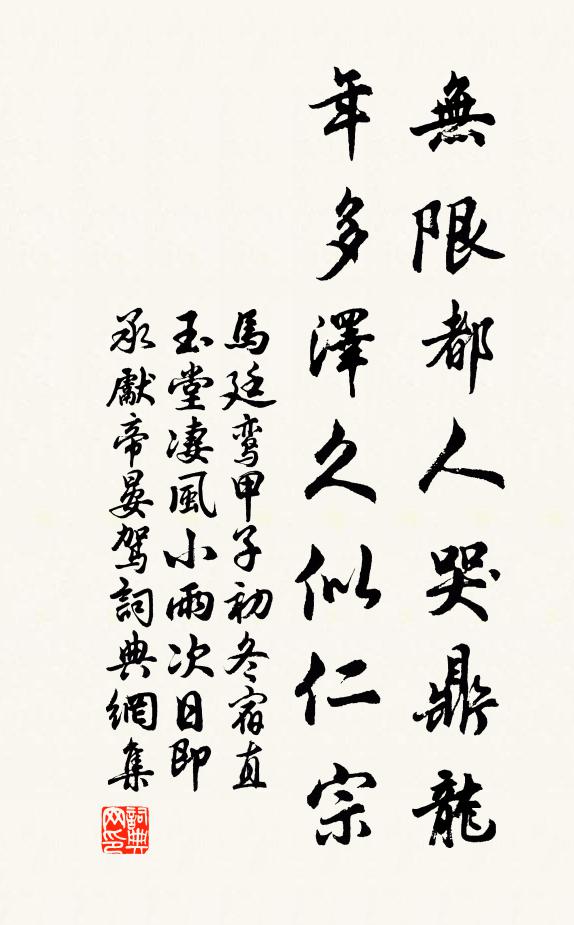 無限都人哭鼎龍
年多澤久似仁宗
馬廷鸾甲子初冬宿直
玉堂凄風小雨次日即
承獻帝晏駕詞典網集
詞典
网印